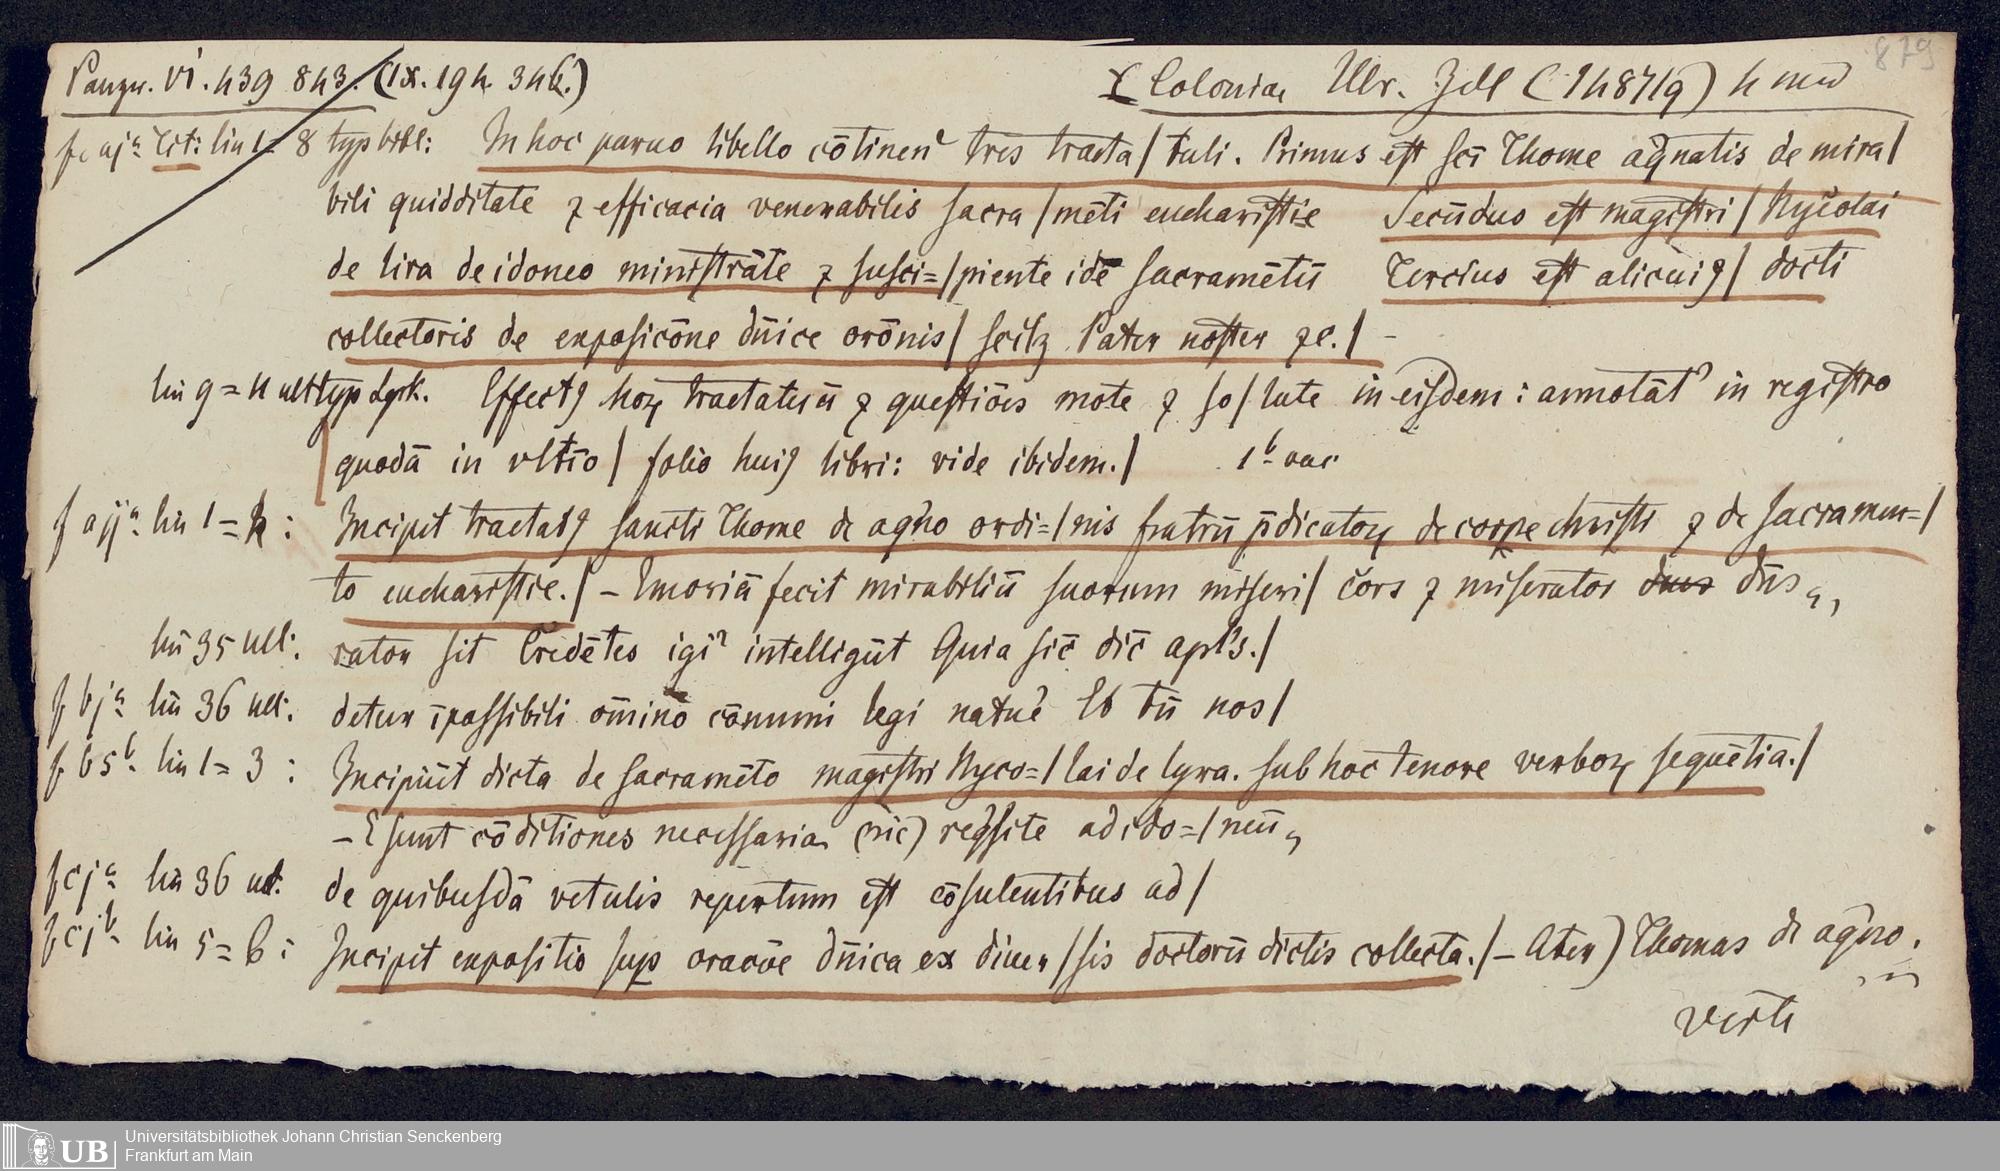 879
Panzer. VI. 439 843. (IX. 194. 346.)
X Coloniae Ulr. Zell (1487/9) 4 min
f. aja Tit: lin 1= 8 typ bibl: In hoc paruo libello cōtinent tres tracta/tuli. Primus est scī Thome aq̄natis de mira/
bili quidditate ⁊ efficacia venerabilis sacra/mēti eucharistie Secūduo est magistri/Nycolai
de lira de idoneo ministrāte ⁊ susci=/piente idē sacramētū Tercius est alicuiꝯ/docti
collectoris de exposicōne dn̄ice orōnis/scilꝫ Pater noster ⁊c./ -
lin 9= 11 ult typ Effectꝯ hoꝝ tractatuū ⁊ questiōis mote ⁊ so/lute in eisdem: annotāt in registro
quodā in vltīo/folio huiꝯ libri: vide ibidem./ 1b vac
f aija lin 1= Incipit tractatꝯ sancti Thome de aq̄no ordi=/nis fratrū p̄dicatoꝝ de corpe christi ⁊ de sacramen=/
to eucharistie./- Emoriā fecit mirabiliū suorum miseri/cors ⁊ miserator dn̄s
lin 35 ult: rator sit Credētes igit intelligūt Quia sic dic apl's./
f bja lin 36 ult: detur īpassibili om̄ino cōmuni legi nature Et tn̄ nos/
f b5b lin 1= 3: Incipiūt dicta de sacramēto magistri Nyco=/lai de lyra. sub hoc tenore verboꝝ sequētia./
- E sunt cōditiones necessaria (sic) reqͥsite ad ido=/neū
f cja lin 36 ult: de quibusdā vetulis repertum est cōsulentibus ad/
f cjb lin 5= 6: Incipit expositio sup oracōe dn̄ica ex diuer/sis doctorū dictis collecta./- Ater) Thomas de aq̄no.
verte
UB Universitätsbibliothek Johann Christian Senckenberg
Frankfurt am Main